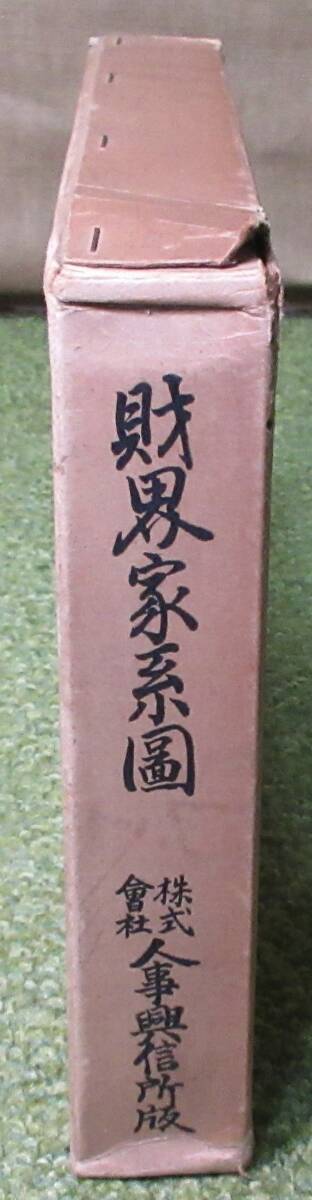 財界家系圖
株式會社 人事興信所版